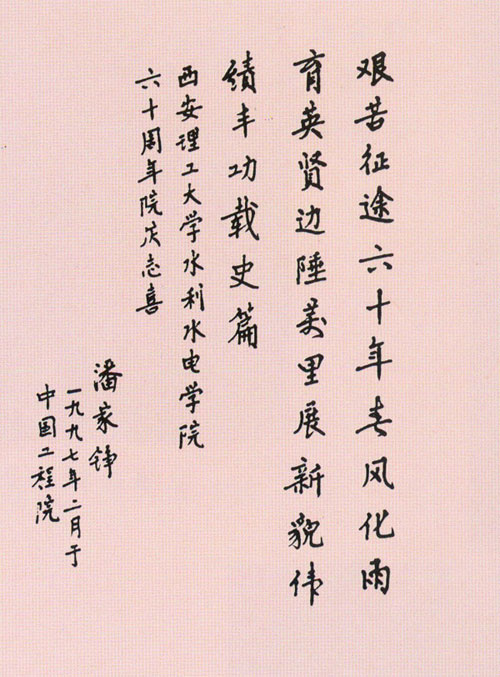 艰苦征途六十年春风化雨
育英贤边陲万里展新貌伟
绩丰功载史篇
西安理工大学水利水电学院
六十周年院庆志喜
潘家铮
一九九七年二月于
中国工程院